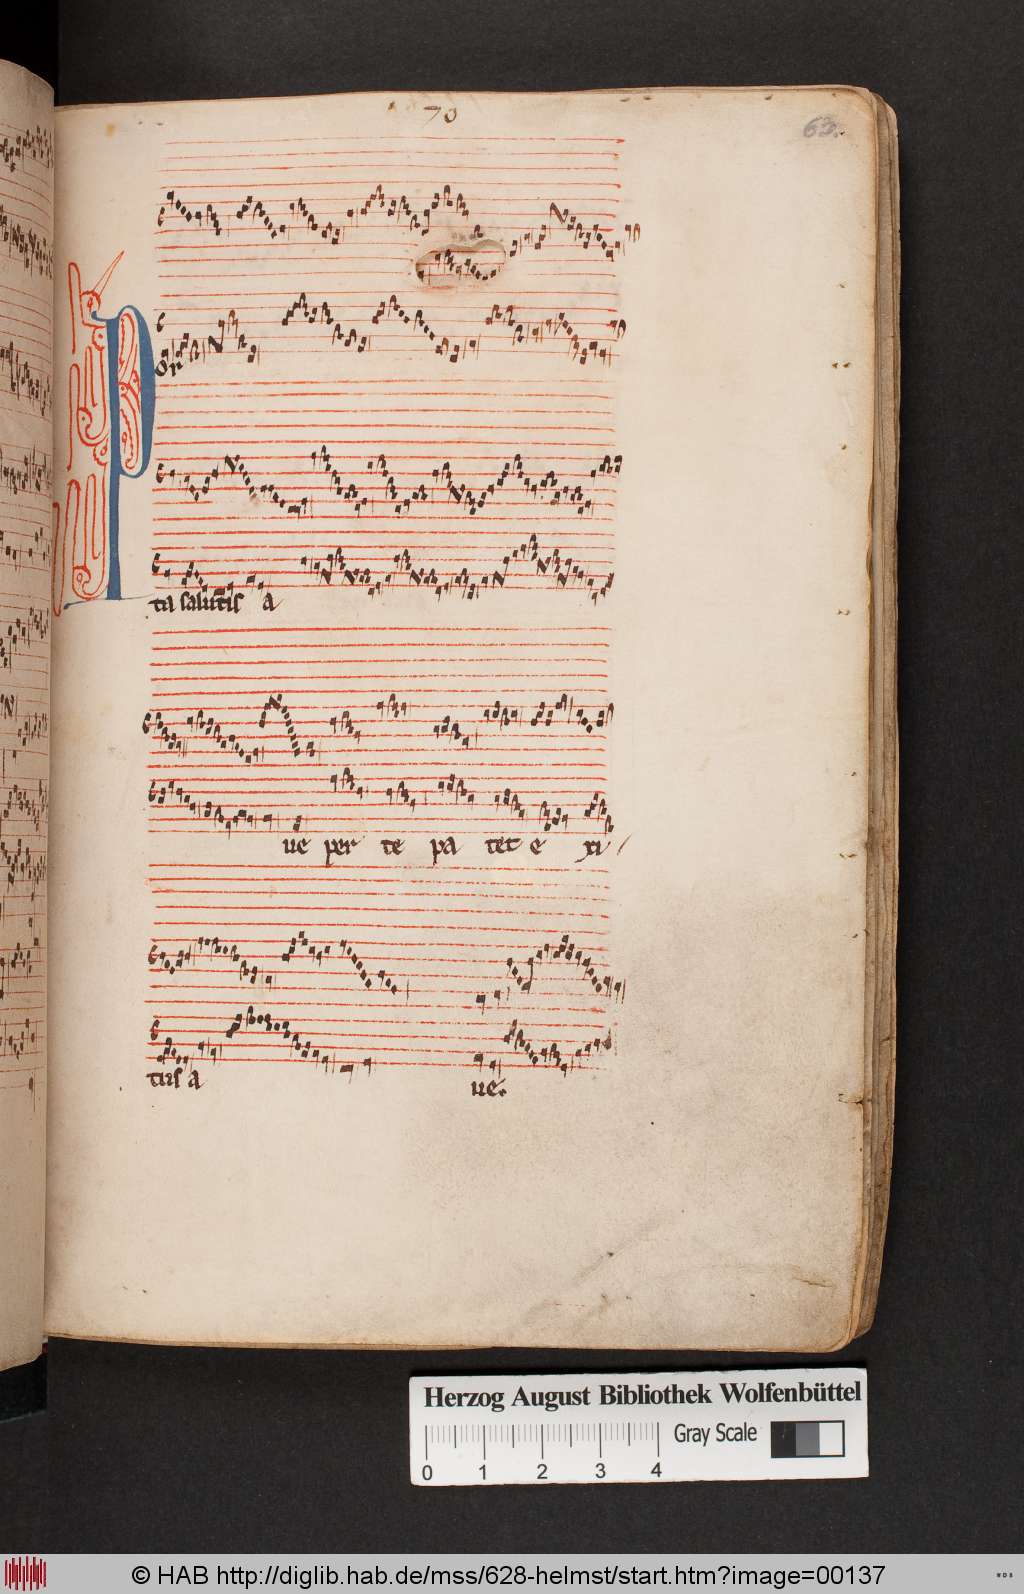 70
63.
P
or
ta salutis a
ue per te pa tet e xi
tus a ue.
Herzog August Bibliothek Wolfenbüttel
Gray Scale
0 1 2 3 4
© HAB http://diglib.hab.de/mss/628-helmst/start.htm?image=00137